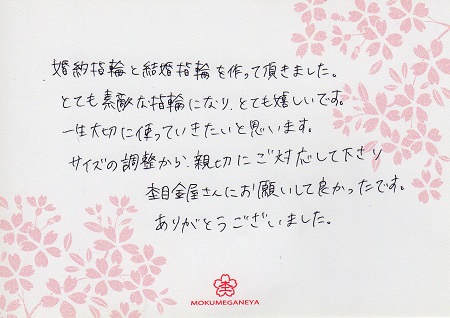 婚約指輪と結婚指輪を作って頂きました。
とても素敵な指輪になり、とても嬉しいです。
一生大切に使っていきたいと思います。
サイズの調整から、親切にご対応して下さり
杢目金屋さんにお願いして良かったです。
ありがとうございました。
杢
MOKUMEGANEYA